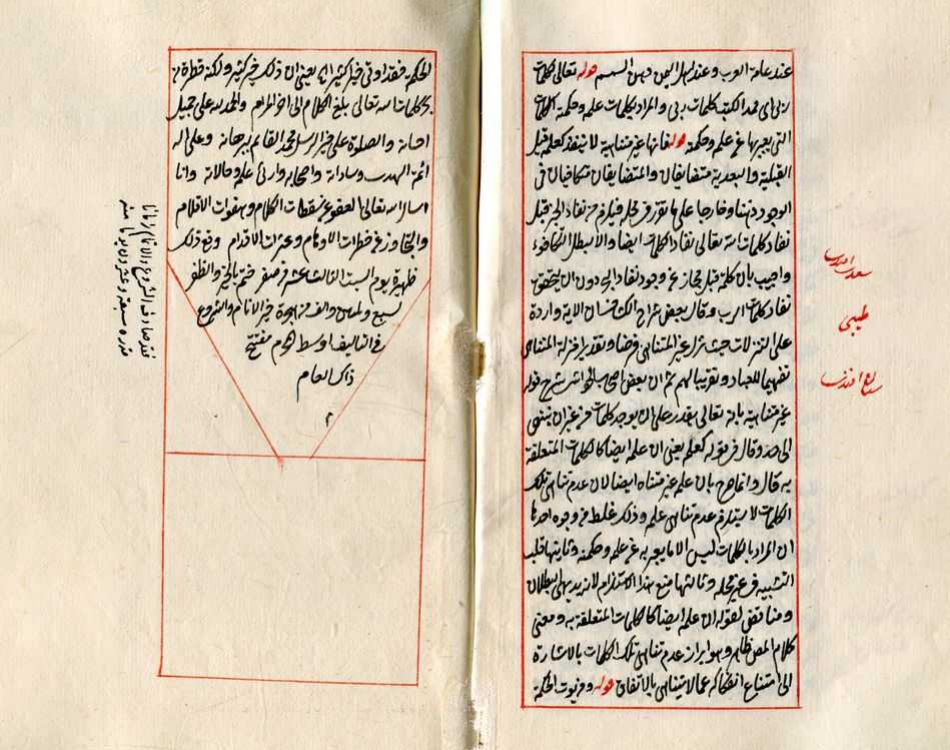 عند عامة العرب وعند اهل اليمن دهن السمسم قوله تعالى كلمات
ربى اى لمدد الكتب كلمات ربى والمراد بكلمات علمه وحكمته الكلمات
التى يعبر بها عن علمه وحكمته قوله فانها غير متناهية لا تنفذ كعلمه قيل
القبلية والبعدية متضايفان والمتضايفان متكافيان فى
الوجود ذهنا وخارجا على ما تقرر فى محله فيلزم من نفاد البحر قبل
نفاد كلمات الله تعالى نفاد الكلمات ايضا والا بطل التكافوء
واجيب بان كلمة قبل مجاز عن وجود نفاد البحر دون ان يتحقق
نفاد كلمات الرب وقال بعض شراح الكشاف ان الاية واردة
على التنزلات حيث نزل غير المتناهى فرضا وتقديرا منزلة المتناهى
تفهيما للعباد وتقريبا لهم ثم ان بعض اصحاب الحواشى شرح قوله
غير متناهية بانه تعالى يقدر على ان يوجد كلمات من غير ان ينتهى
الى حد وقال فى قوله كعلمه يعنى ان علمه ايضا كالكلمات المتعلقة
به قال وانما صرح بان علمه غير متناه ايضا لان عدم تناهى تلك
الكلمات لا يستلزم عدم تناهى علمه وذلك غلط من وجوه احدها
ان المراد بالكلمات ليس الا ما يعبر به عن علمه وحكمته وثانيها قلب
التشبيه فى غير محله وثالثها منع هذا الاستلزام لانه بديهى البطلان
ومناقض لقوله ان علمه ايضا كالكلمات المتعلقة به ومعنى
كلام المص ظاهر وهو ابراز عدم تناهى تلك الكلمات بالاشارة
الى امتناع انفكاكه عما لا يتناهى بالاتفاق قوله ومن يؤت الحكمة
سعدى افندى
طيبى
سنان افندى
الحكمة فقد اوتى خيرا كثيرا اى يعنى ان ذلك خير كثير ولكنه قطرة من
بحر كلمات الله تعالى بلغ الكلام الى اخر المرام والحمد لله على جميل
احسانه والصلوة على خير الرسل محمد القائم ببرهانه وعلى اله
ائمة الهدى وساداته واصحابه وارثى علمه وحالاته وانا
اسأل الله تعالى العفو عن سقطات الكلام وهفوات الاقلام
والتجاوز عن خطرات الاوهام وعثرات الاقدام وقع ذلك
ظهيرة يوم السبت الثالث عشر من صفر ختم بالخير والظفر
لسبع وثلثين والف من هجرة خير الانام والشروع
فى التأليف اوسط يوم مفتتح
ذاك العام
م
فقد صادف الشروع والاتمام زمانا
قدره سبعة وعشرون يوما منه